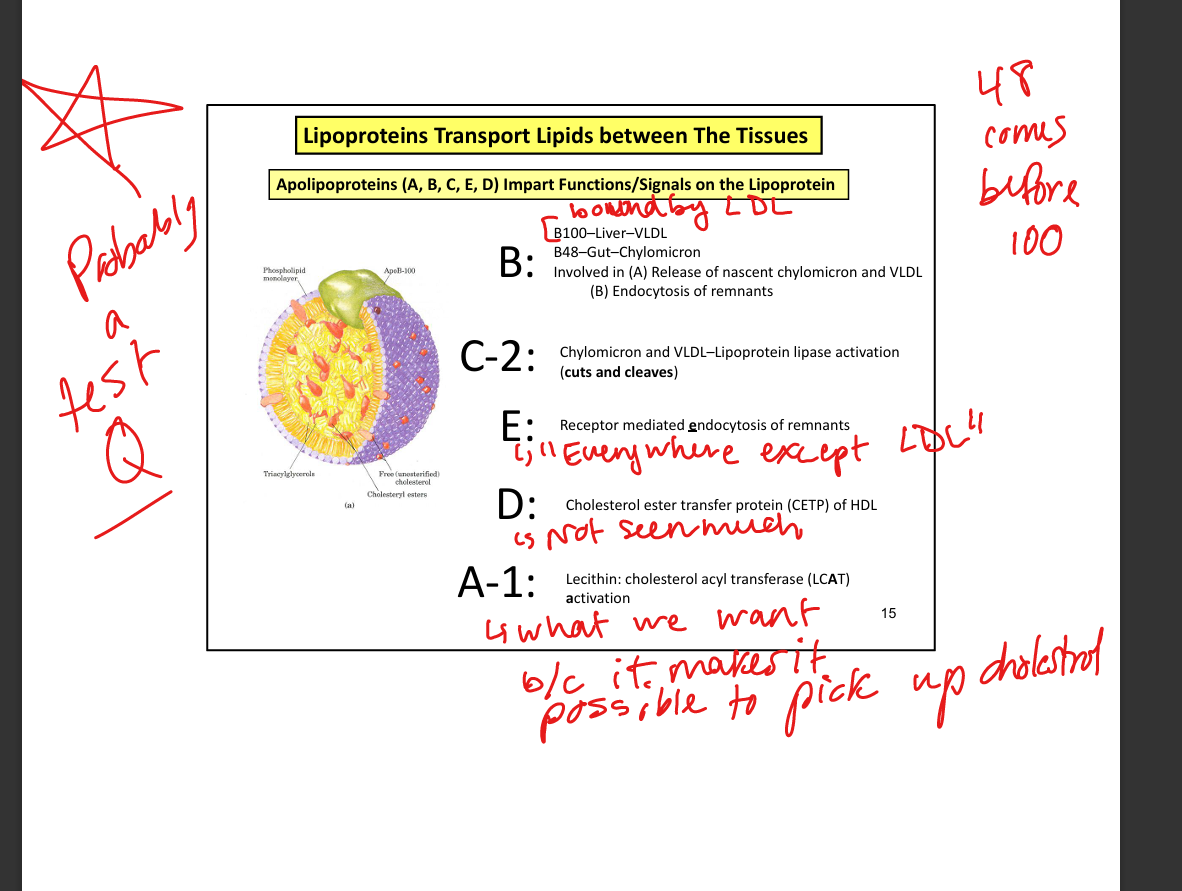 48
comes
before
100
Probably
a
test
Q
Lipoproteins Transport Lipids between The Tissues
Apolipoproteins (A, B, C, E, D) Impart Functions/Signals on the Lipoprotein
bound by LDL
B:
B100–Liver–VLDL
B48–Gut–Chylomicron
Involved in (A) Release of nascent chylomicron and VLDL
(B) Endocytosis of remnants
Phospholipid
monolayer
ApoB-100
Triacylglycerols
Free (unesterified)
cholesterol
Cholesteryl esters
(a)
C-2:
Chylomicron and VLDL–Lipoprotein lipase activation
(cuts and cleaves)
E:
Receptor mediated endocytosis of remnants
"Everywhere except LDL"
D:
Cholesterol ester transfer protein (CETP) of HDL
Not seen much
A-1:
Lecithin: cholesterol acyl transferase (LCAT)
activation
what we want
b/c it makes it
possible to pick up cholestrol
15